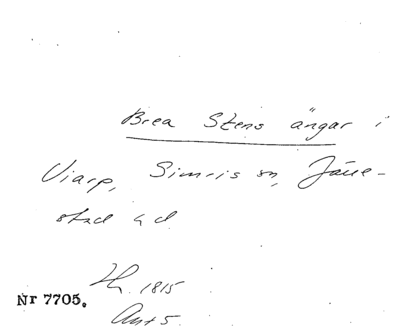 Brea Stens ängar i
Viarp, Simris sn, Järre-
stad hd
Hr. 1815
Nr 7705.
Akt 5.